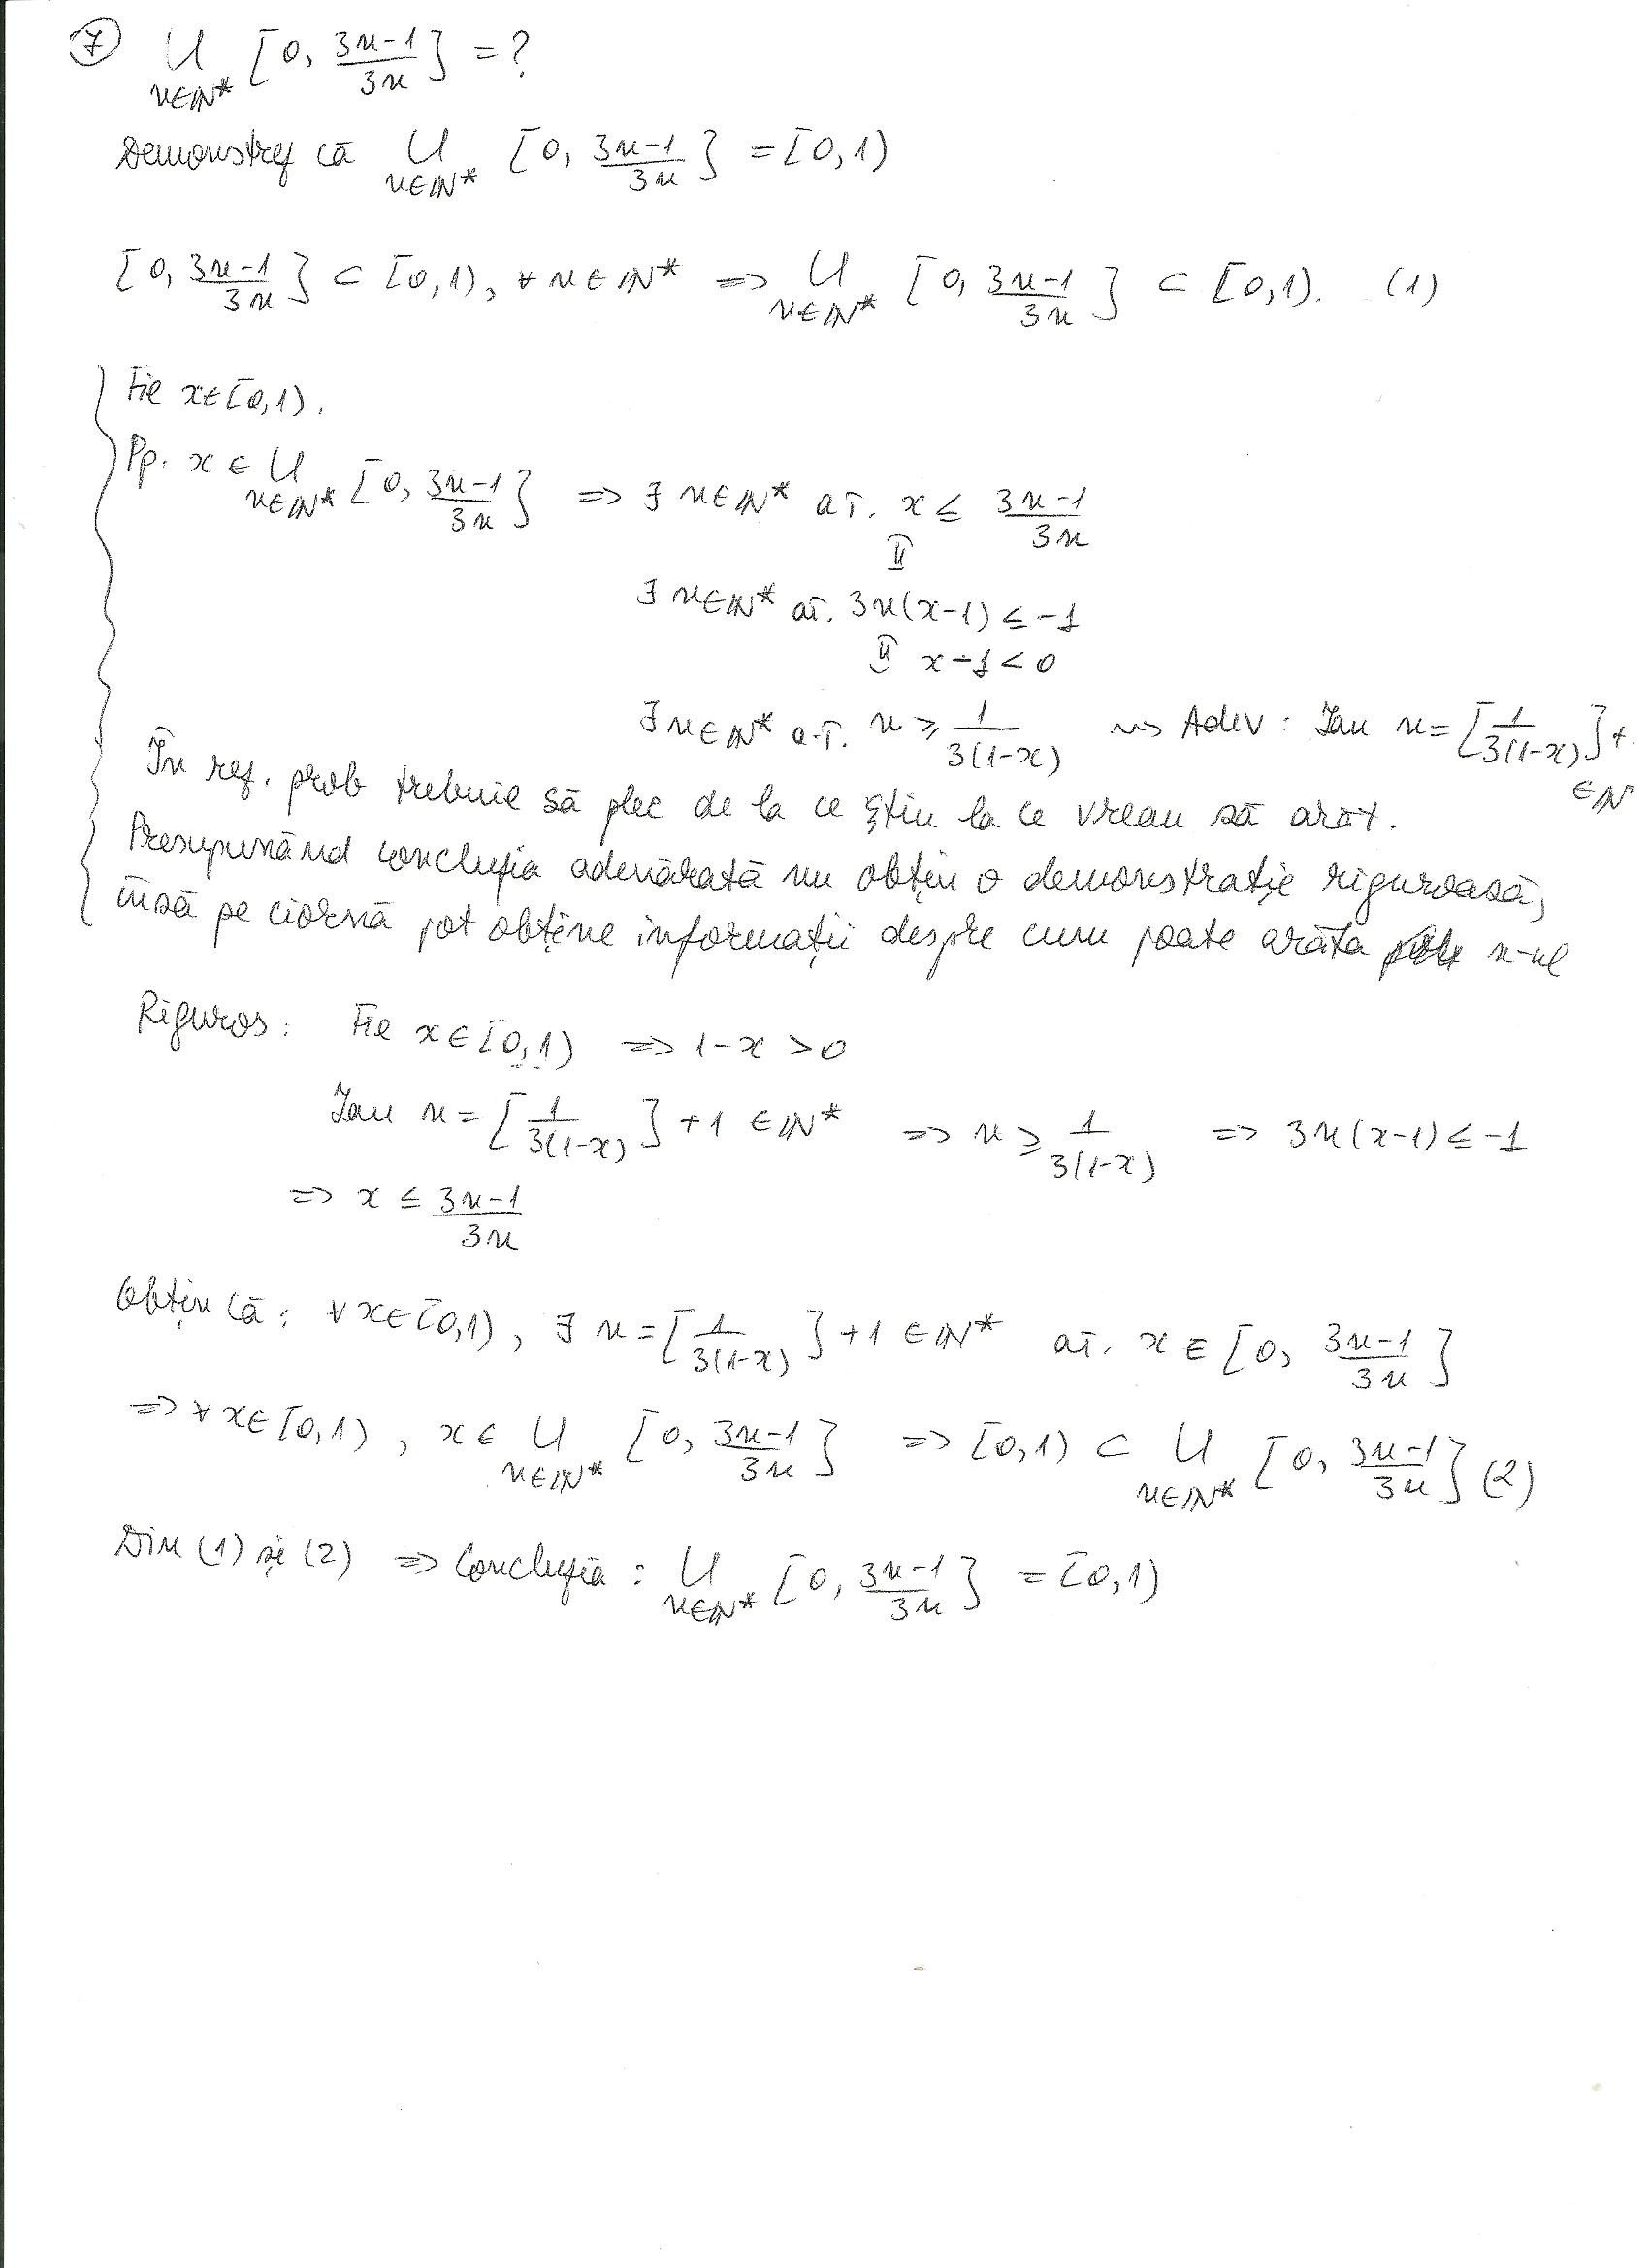 ⑦ ⋃_{n∈ℕ*} [0, (3n-1)/(3n)] = ?
Demonstrez că ⋃_{n∈ℕ*} [0, (3n-1)/(3n)] = [0,1)
[0, (3n-1)/(3n)] ⊂ [0,1), ∀ n∈ℕ* => ⋃_{n∈ℕ*} [0, (3n-1)/(3n)] ⊂ [0,1). (1)
Fie x∈[0,1).
Pp. x ∈ ⋃_{n∈ℕ*} [0, (3n-1)/(3n)] => ∃ n∈ℕ* aî. x ≤ (3n-1)/(3n)
⇕
∃ n∈ℕ* aî. 3n(x-1) ≤ -1
⇕ x-1<0
∃ n∈ℕ* a.î. n ≥ 1/(3(1-x)) ⇝ Adev: Iau n = [1/(3(1-x))] +
∈ℕ
În rez. prob trebuie să plec de la ce știu la ce vreau să arăt.
Presupunând concluzia adevărată nu obțin o demonstrație riguroasă,
însă pe ciornă pot obține informații despre cum poate arăta n-ul
Riguros: Fie x∈[0,1) => 1-x >0
Iau n = [1/(3(1-x))] +1 ∈ℕ* => n ≥ 1/(3(1-x)) => 3n(x-1) ≤ -1
=> x ≤ (3n-1)/(3n)
Obțin că: ∀ x∈[0,1), ∃ n = [1/(3(1-x))] +1 ∈ℕ* aî. x ∈ [0, (3n-1)/(3n)]
=> ∀ x∈[0,1), x∈ ⋃_{n∈ℕ*} [0, (3n-1)/(3n)] => [0,1) ⊂ ⋃_{n∈ℕ*} [0, (3n-1)/(3n)] (2)
Din (1) și (2) => Concluzia: ⋃_{n∈ℕ*} [0, (3n-1)/(3n)] = [0,1)